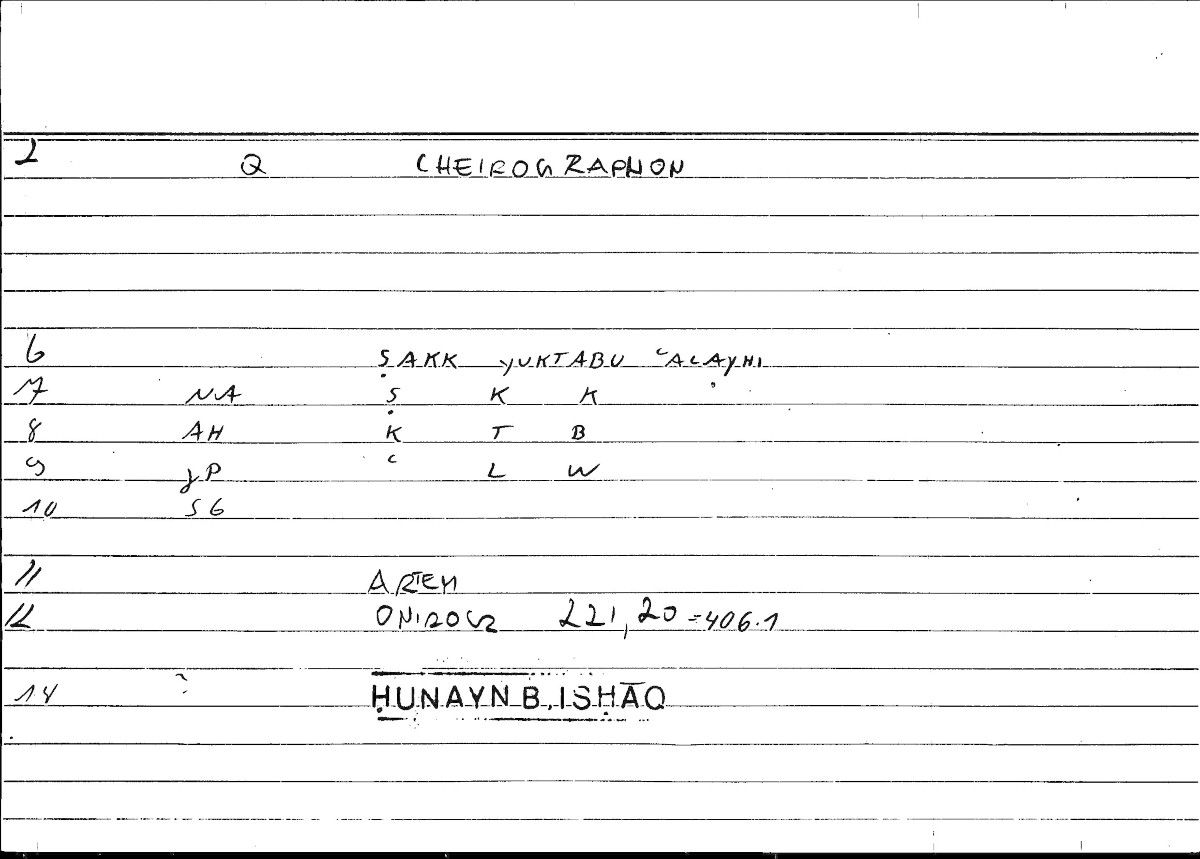 2 Q CHEIROGRAPHON
6 ṢAKK YUKTABU ʿALAYHI
7 NA Ṣ K K
8 AH K T B
9 YP ʿ L W
10 SG
11 ARTEM
12 ONIROCR 221,20=406.1
14 ? ḤUNAYN B. ISḤĀQ